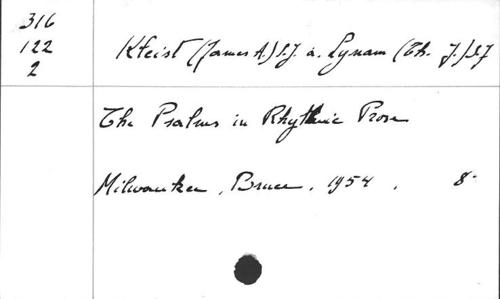 316
122
2
Kleist (James A.) S.J. a. Lynam (Th. J.) S.J
The Psalms in Rhythmic Prose
Milwaukee, Bruce, 1954, 8-